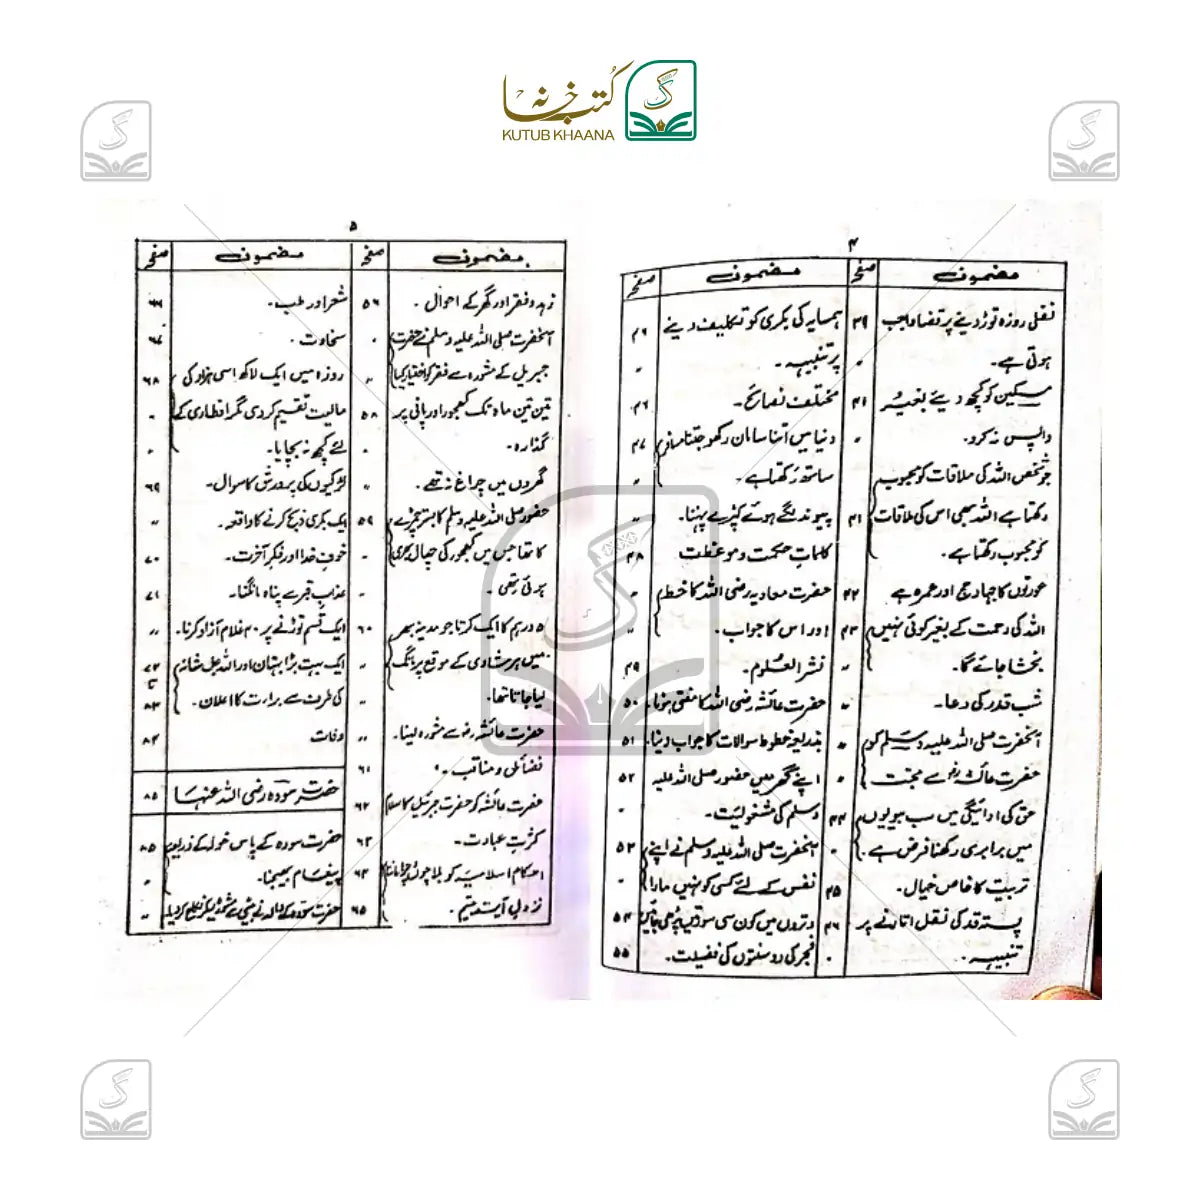 کتب خانہ
KUTUB KHAANA
۴
مضمون صفحہ
نفلی روزہ توڑ دینے پر قضا واجب ۳۹
ہوتی ہے۔
مسکین کو کچھ دیئے بغیر ۴۱
واپس نہ کرو۔
جو شخص اللہ کی ملاقات کو محبوب
رکھتا ہے اللہ بھی اس کی ملاقات ۴۱
کو محبوب رکھتا ہے۔
عورتوں کا جہاد حج اور عمرہ ہے ۴۲
اللہ کی رحمت کے بغیر کوئی نہیں ۴۳
بخشا جائے گا۔ "
شب قدر کی دعا۔ "
آنحضرت صلی اللہ علیہ وسلم کو "
حضرت عائشہ رضہ سے محبت
حق کی ادائیگی میں سب بیویوں ۴۴
میں برابری رکھنا فرض ہے۔
تربیت کا خاص خیال۔ ۴۵
پستہ قد کی نقل اتارنے پر ۴۶
تنبیہہ۔
مضمون صفحہ
ہمسایہ کی بکری کو تکلیف دینے ۴۶
پر تنبیہہ۔ "
مختلف نصائح۔ ۴۶
دنیا میں اتنا سامان رکھو جتنا مسافر ۴۷
ساتھ رکھتا ہے۔ "
پیوند لگے ہوئے کپڑے پہننا۔ "
کلماتِ حکمت و موعظت ۴۸
حضرت معاویہ رضی اللہ کا خط "
اور اس کا جواب۔ "
نشر العلوم۔ ۴۹
حضرت عائشہ رضی اللہ کا مفتی ہونا۔ ۵۰
بذریعہ خطوط سوالات کا جواب دینا۔ ۵۱
اپنے گھر میں حضور صلی اللہ علیہ ۵۲
وسلم کی مشغولیت۔ "
آنحضرت صلی اللہ علیہ وسلم نے اپنے ۵۳
نفس کے لئے کسی کو نہیں مارا "
وتروں میں کون سی سورتیں پڑھی جائیں ۵۴
فجر کی دو سنتوں کی فضیلت۔ ۵۵
۵
مضمون صفحہ
زہد و فقر اور گھر کے احوال۔ ۵۶
آنحضرت صلی اللہ علیہ وسلم نے حضرت
جبریل کے مشورہ سے فقر کو اختیار کیا "
تین تین ماہ تک کھجور اور پانی پر ۵۸
گذارہ۔
گھروں میں چراغ نہ تھے۔ "
حضور صلی اللہ علیہ وسلم کا بستر چمڑے ۵۹
کا تھا جس میں کھجور کی چھال بھری
ہوئی تھی۔
۵ درہم کا ایک کرتا جو مدینہ بھر ۶۰
میں ہر شادی کے موقع پر مانگ "
لیا جاتا تھا۔ "
حضرت عائشہ رضہ سے مشورہ لینا۔ "
فضائل و مناقب۔ ۶۱
حضرت عائشہ کو حضرت جبرئیل کا سلام ۶۲
کثرتِ عبادت۔ ۶۳
احکام اسلامیہ کو بلا چوں چرا ماننا ۶۴
نزول آیتِ تیمم۔ ۶۵
مضمون صفحہ
شعر اور طب۔ ۶۶
سخاوت۔ ۶۷
روزہ میں ایک لاکھ اسی ہزار کی ۶۸
مالیت تقسیم کردی مگر افطاری کے
لئے کچھ نہ بچایا۔
لڑکیوں کی پرورش کا سوال۔ ۶۹
ایک بکری ذبح کرنے کا واقعہ۔ "
خوفِ خدا اور فکرِ آخرت۔ ۷۰
عذابِ قبر سے پناہ مانگنا۔ ۷۱
ایک قسم توڑنے پر ۴۰ غلام آزاد کرنا۔ "
ایک بہت بڑا بہتان اور اللہ جل شانہ ۷۲ تا
کی طرف سے براءت کا اعلان۔ ۸۳
وفات ۸۴
حضرت سودہ رضی اللہ عنہا ۸۵
حضرت سودہ کے پاس خولہ کے ذریعہ ۸۵
پیغام بھیجنا۔